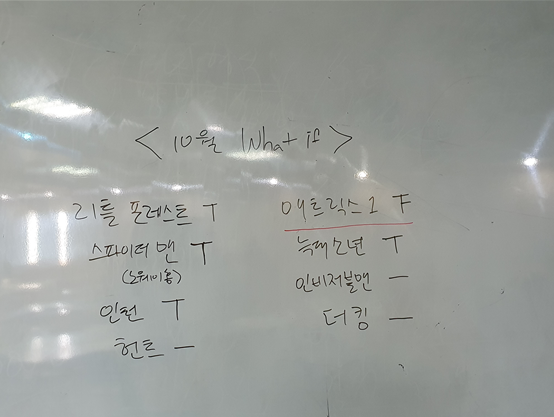 < 10월 What if >
리틀 포레스트 T
스파이더맨 T
(노웨이홈)
인턴 T
헌트 —
매트릭스 1 F
늑대소년 T
인비저블맨 —
더킹 —